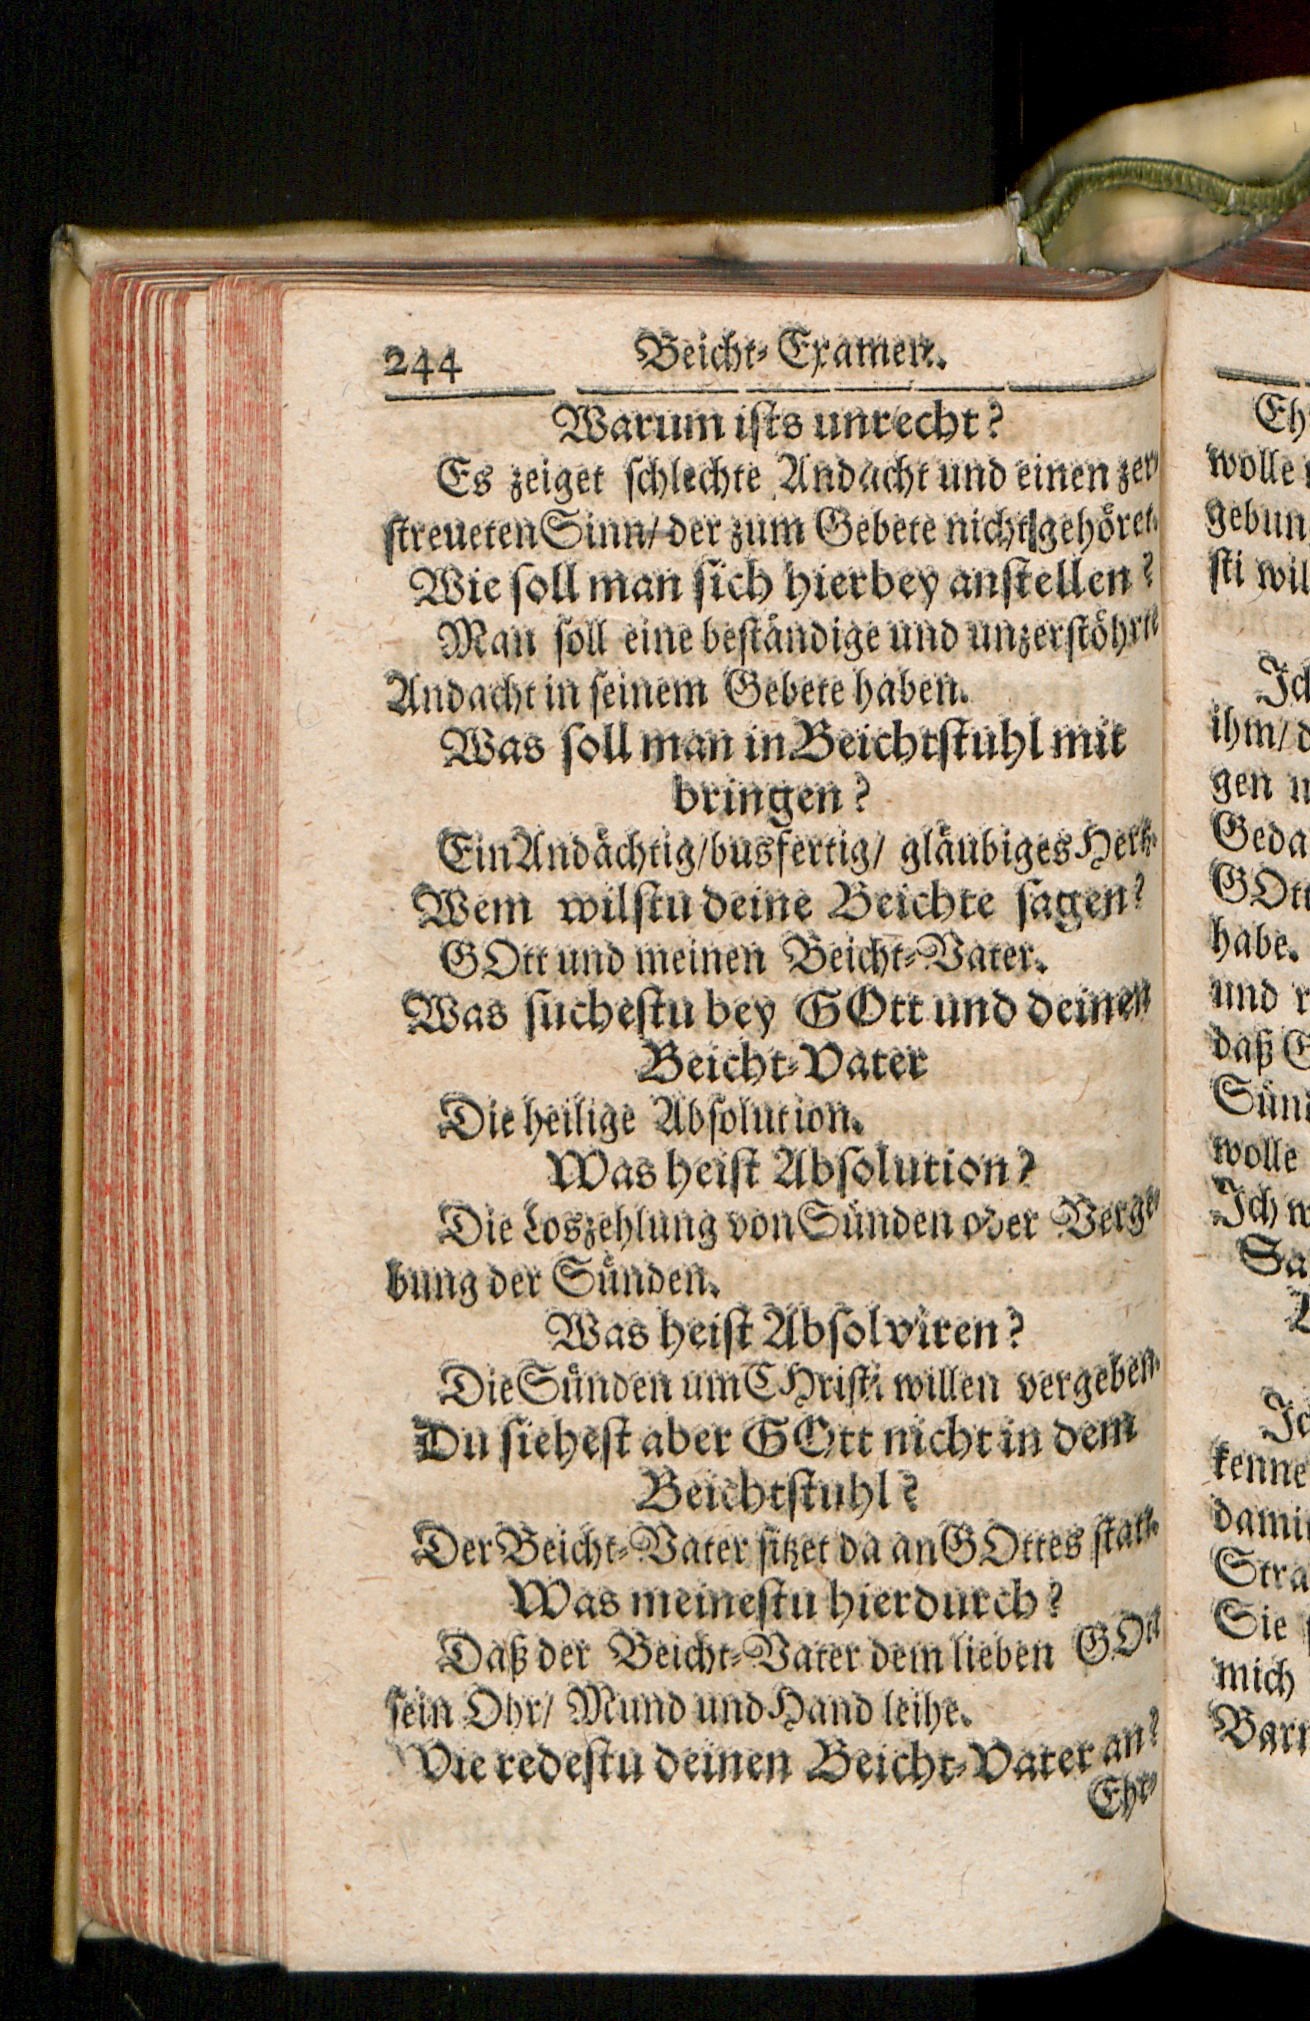 244 Beicht-Examen.
Warum ists unrecht?
Es zeiget schlechte Andacht und einen zer-
streueten Sinn/ der zum Gebete nicht gehöret.
Wie soll man sich hierbey anstellen?
Man soll eine beständige und unzerstöhrte
Andacht in seinem Gebete haben.
Was soll man in Beichtstuhl mit
bringen?
Ein Andächtig/ busfertig/ gläubiges Hertz.
Wem wilstu deine Beichte sagen?
GOtt und meinen Beicht-Vater.
Was suchestu bey GOtt und deinen
Beicht-Vater
Die heilige Absolution.
Was heist Absolution?
Die Loszehlung von Sünden oder Verge-
bung der Sünden.
Was heist Absolviren?
Die Sünden um CHristi willen vergeben.
Du siehest aber GOtt nicht in dem
Beichtstuhl?
Der Beicht-Vater sitzet da an GOttes statt.
Was meinestu hierdurch?
Daß der Beicht-Vater dem lieben GOtt
sein Ohr/ Mund und Hand leihe.
Wie redestu deinen Beicht-Vater an?
Ehr-
Eh
wolle
gebun
sti wil
Ich
ihm/ d
gen
Geda
GOtt
habe.
und r
daß
Sünd
wolle
Ich w
Sa
Ic
kenne
damit
Stra
Sie
mich
Barr